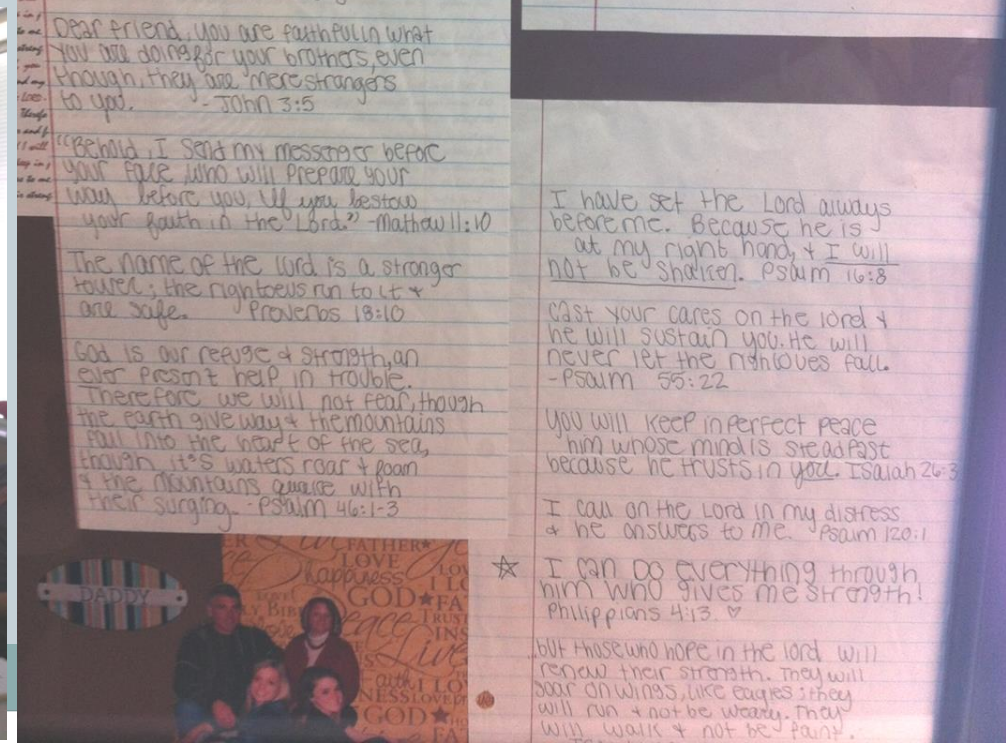 Dear friend, you are faithful in what
you are doing for your brothers, even
though, they are mere strangers
to you. - John 3:5
"Behold, I send my messenger before
your face, who will prepare your
way before you, If you bestow
your faith in the Lord." -Mathew 11:10
The name of the lord is a stronger
tower; the rightoeus run to it +
are safe. Proverbs 18:10
God is our refuge & strength, an
ever present help, in trouble.
Therefore we will not fear, though
the earth give way & the mountains
fall into the heart of the sea,
though it's waters roar & foam
& the mountains quake with
their surging. -Psalm 46:1-3
DADDY
FATHER
happiness
GOD FA
TRUST
Peace
Live
faith
GOD
I have set the Lord always
before me. Because he is
at my right hand, & I will
not be shaken. Psalm 16:8
Cast your cares on the lord &
he will sustain you. He will
never let the rightoues fall.
-Psalm 55:22
You will keep in perfect peace
him whose mind is steadfast
because he trusts in you. Isaiah 26:3
I call on the Lord in my distress
& he answers to me. Psalm 120:1
I can do everything through
him who gives me strength!
Philippians 4:13 ♡
but those who hope in the lord will
renew their strength. They will
soar on wings, like eagles; they
will run & not be weary. They
will walk & not be faint.